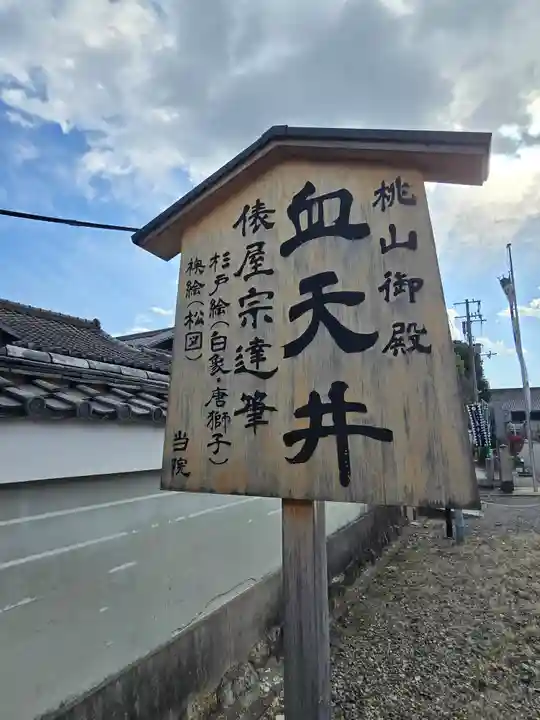 桃山御殿
血天井
俵屋宗達筆
杉戸絵(白象・唐獅子)
襖絵(松図)
当院